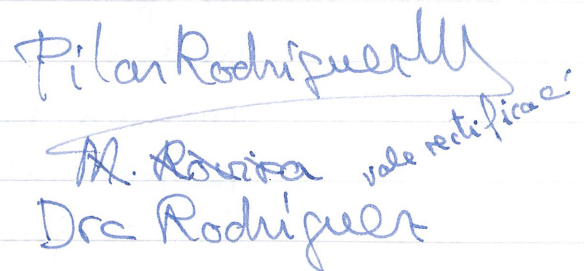 Pilar Rodríguez
M. Rovira vale rectificac
Dra Rodríguez